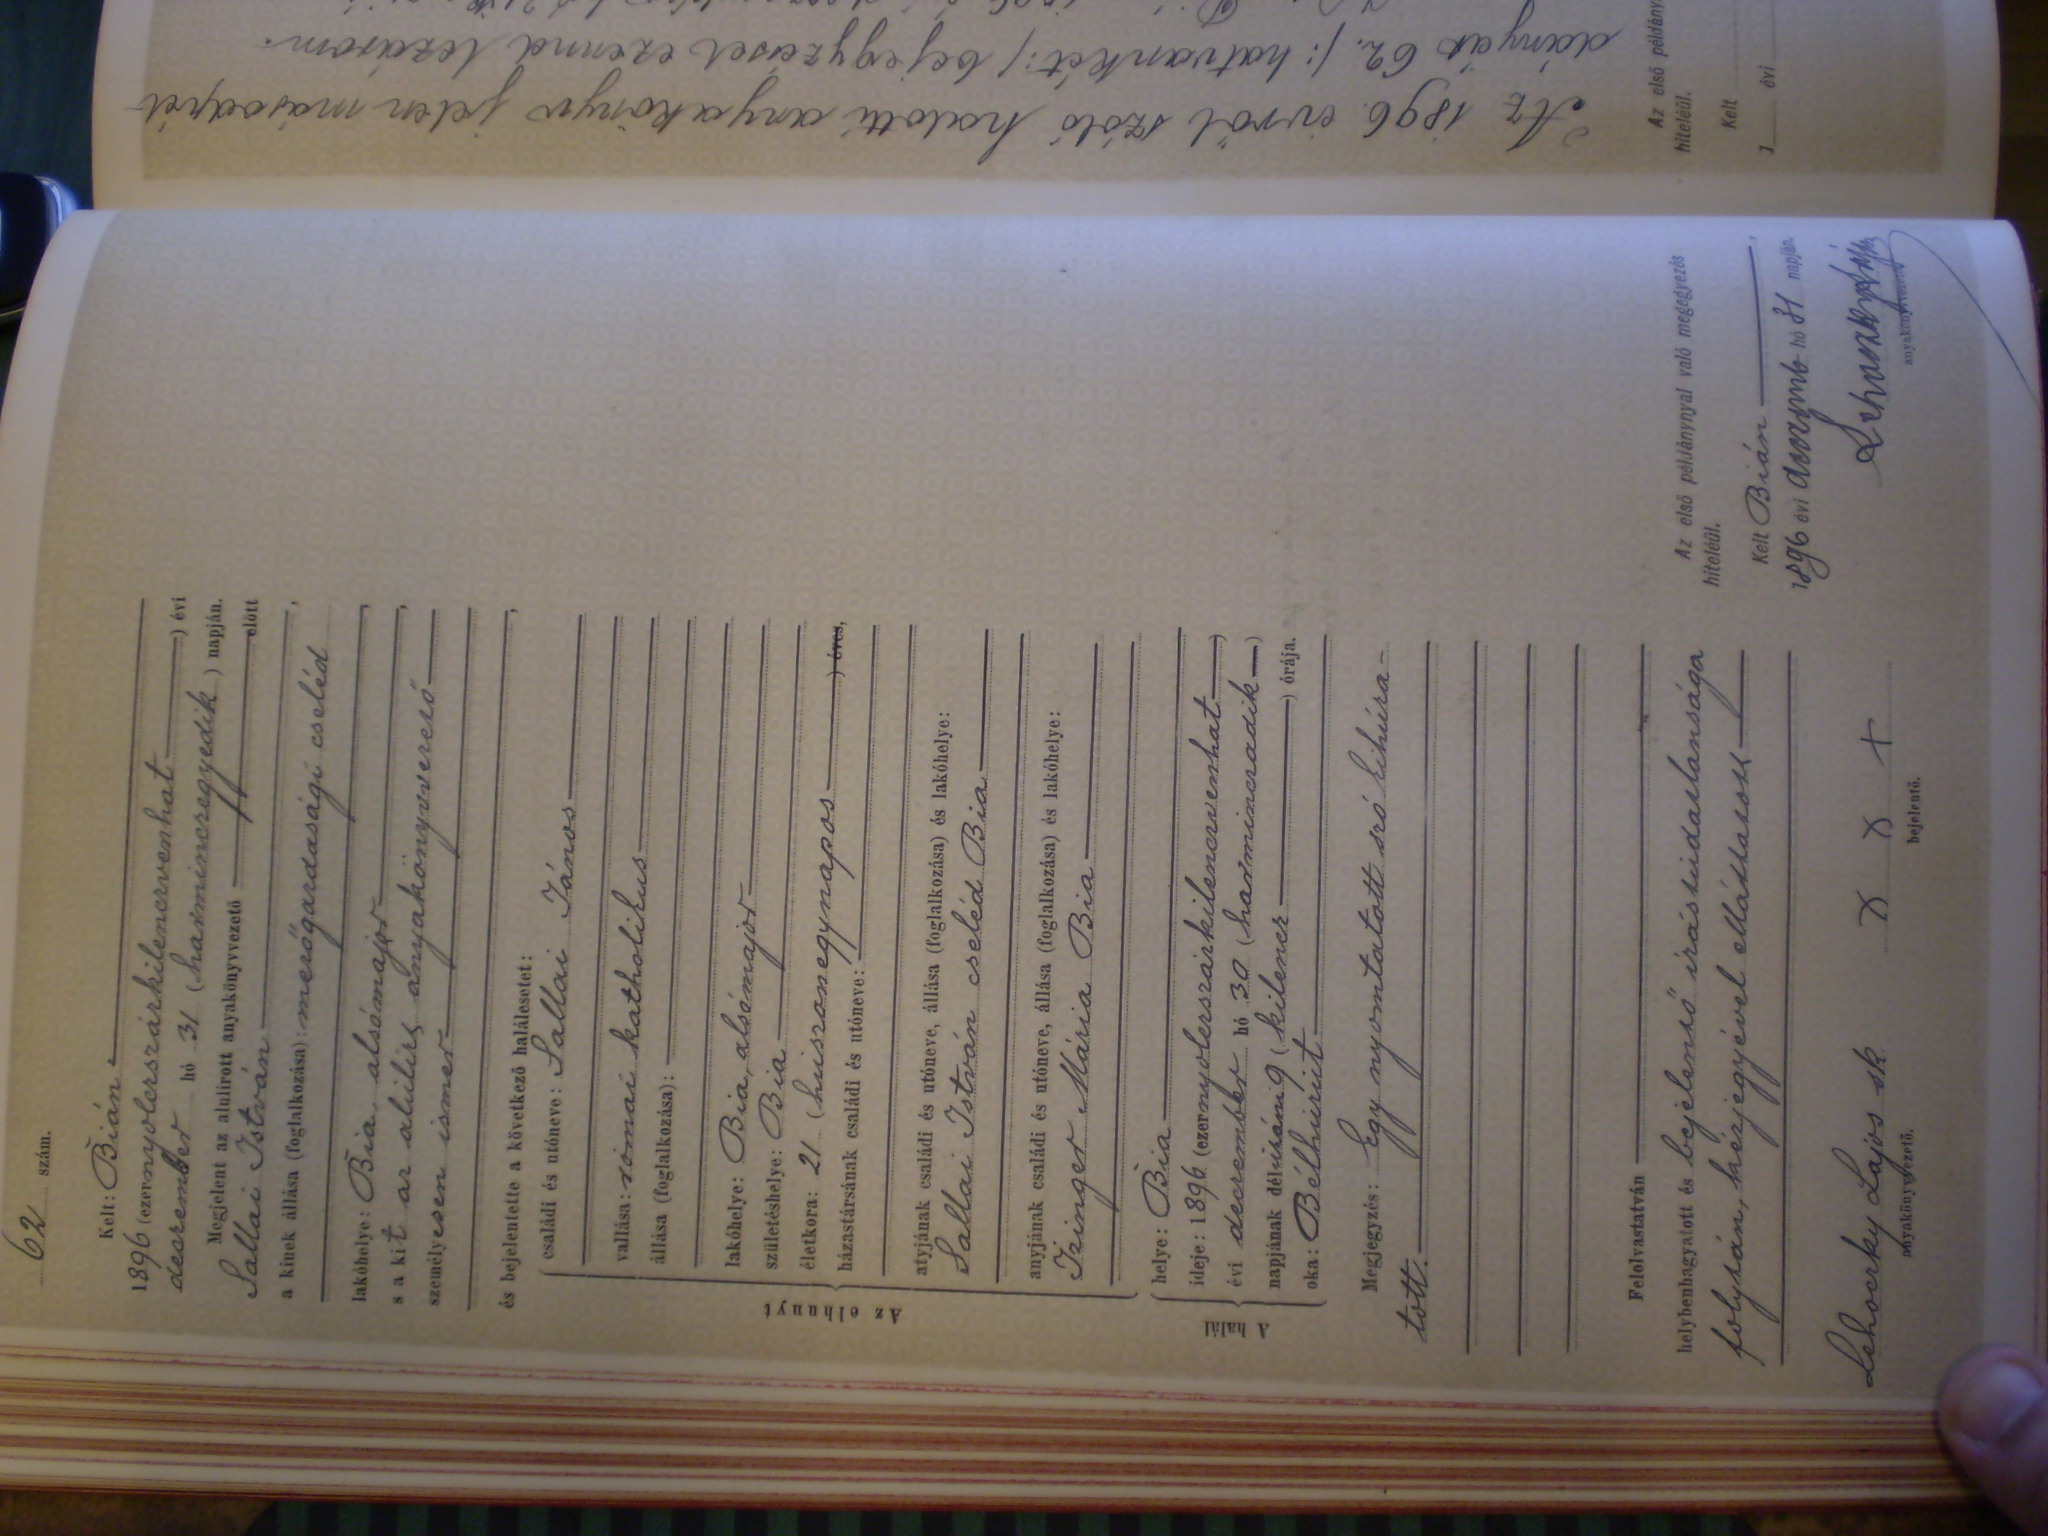 62 szám.
Kelt: Bián
1896 (ezernyolcszázkilencvenhat) évi
deszember hó 31 (harmincegyedik) napján.
Megjelent az alulirott anyakönyvvezető előtt
Sallai István
a kinek állása (foglalkozása): mezőgazdasági cseléd
lakóhelye: Bia, alsómajor,
s a kit az alulírt anyakönyvvezető,
személyesen ismer
és bejelentette a következő halálesetet:
Az elhunyt
családi és utóneve: Sallai János
vallása: római katholikus
állása (foglalkozása):
lakóhelye: Bia, alsómajor
születéshelye: Bia
életkora: 21 (huszonegynapos) éves,
házastársának családi és utóneve:
atyjának családi és utóneve, állása (foglalkozása) és lakóhelye:
Sallai István cseléd Bia
anyjának családi és utóneve, állása (foglalkozása) és lakóhelye:
Izinger Mária Bia
A halál
helye: Bia
ideje: 1896 (ezernyolcszázkilencvenhat)
évi december hó 30 (harmincadik)
napjának délutáni 9 (kilenc) órája.
oka: Bélhurút
Megjegyzés: Egy nyomtatott szó kihúza-
tott.
Felolvastatván
helybenhagyatott és bejelentő írástudatlansága
folytán, kézjegyével elláttatott
Lehoczky Lajos sk x x +
anyakönyvvezető. bejelentő.
Az első példánynyal való megegyezés
hiteléül.
Kelt Bián,
1896 évi deczemb hó 31 napján.
Lehoczky Lajos
anyakönyvvezető
Az 1896. évről szóló halotti anyakönyv jelen másodpél-
dányát 62. /: hatvankét:/ bejegyzéssel ezennel lezárom.
Az első példány
hiteléül.
Kelt
1 évi